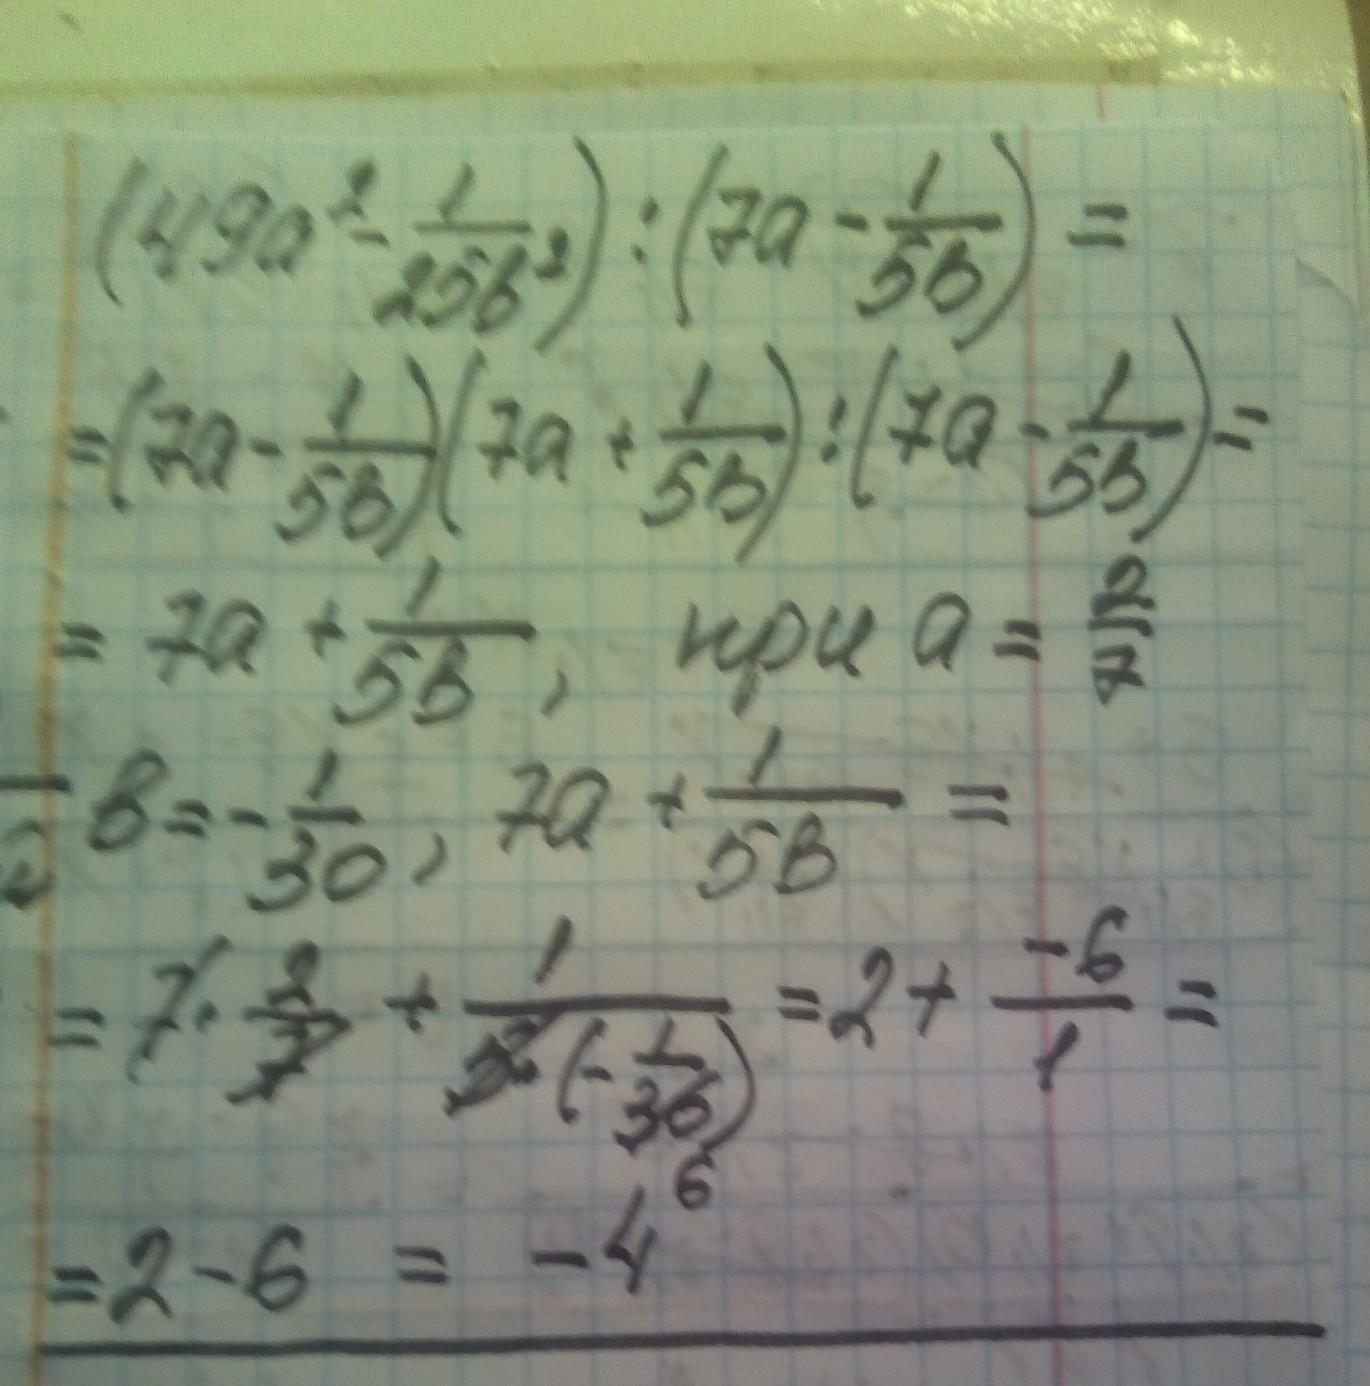 (49a² - 1/25b²) : (7a - 1/5b) =
= (7a - 1/5b)(7a + 1/5b) : (7a - 1/5b) =
= 7a + 1/5b, при a = 2/7
b = -1/30, 7a + 1/5b =
= 7 · 2/7 + 1/5(-1/30) = 2 + -6/1 =
6
= 2 - 6 = -4